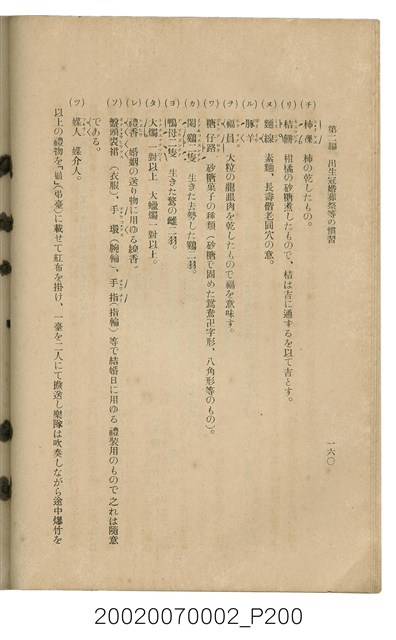 第二編　出生冠婚葬祭等の慣習
一六〇
(チ)　柿粿　柿の乾したもの。
(リ)　桔餅　柑橘の砂糖煮したもので、桔は吉に通ずるを以て吉とす。
(ヌ)　麵線　素麵、長壽偕老同穴の意。
(ル)　豚羊
(ヲ)　福員　大粒の龍眼肉を乾したもので福を意味す。
(ワ)　糖仔路　砂糖菓子の種類(砂糖で固めた鴛鴦卍字形、八角形等のもの)。
(カ)　閹鷄二隻　生きた去勢した鷄二羽。
(ヨ)　鴨母二隻　生きた鶩の雌二羽。
(タ)　大燭一對以上　大蠟燭一對以上。
(レ)　禮香　婚姻の送り物に用ゆる線香。
(ソ)　盤頭裘裙(衣服)、手環(腕輪)、手指(指輪)等で結婚日に用ゆる禮裝用のもので之れは隨意
である。
(ツ)　媒人　媒介人。
以上の禮物を「𣛮」(吊臺)に載せて紅布を掛け、一臺を二人にて擔送し樂隊は吹奏しながら途中爆竹を
20020070002_P200